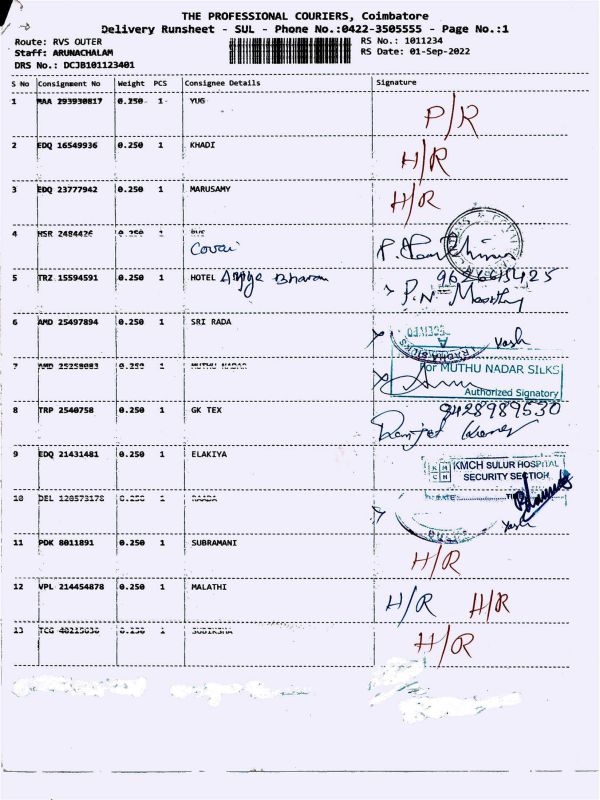 THE PROFESSIONAL COURIERS, Coimbatore
Delivery Runsheet - SUL - Phone No.:0422-3505555 - Page No.:1
Route: RVS OUTER
RS No.: 1011234
Staff: ARUNACHALAM
RS Date: 01-Sep-2022
DRS No.: DCJB101123401
S No Consignment No Weight PCS Consignee Details Signature
1 MAA 293930817 0.250 1 YUG P/R
2 EDQ 16549936 0.250 1 KHADI H/R
3 EDQ 23777942 0.250 1 MARUSAMY H/R
4 MSR 2484426 0.250 1
Covai
5 TRZ 15594591 0.250 1 HOTEL Bhavan
P.N. Moorthy
6 AMD 25497894 0.250 1 SRI RADA
Yash
7 AMD 25258083 0.250 1 MUTHU NADAR
For MUTHU NADAR SILKS
Authorized Signatory
8 TRP 2540758 0.250 1 GK TEX
9428989530
9 EDQ 21431481 0.250 1 ELAKIYA
KMCH SULUR HOSPITAL
SECURITY SECTION
10 DEL 120573178 0.250 1 RAADA
DATE
Yash
11 PDK 8011891 0.250 1 SUBRAMANI H/R
12 VPL 214454878 0.250 1 MALATHI H/R H/R
13 TCG 0.250 1 SUBIKSHA H/R